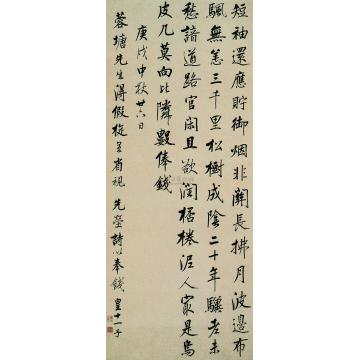 短袖還應貯御烟非關長拂月波邊布
颿無恙三千里松樹成陰二十年驥老未
愁諳道路官閑且欲潤桮棬泥人家是烏
皮几莫向比隣數俸錢
庚戌中秋廿六日
蓉塘先生得假旋里省視先塋詩以奉餞皇十一子